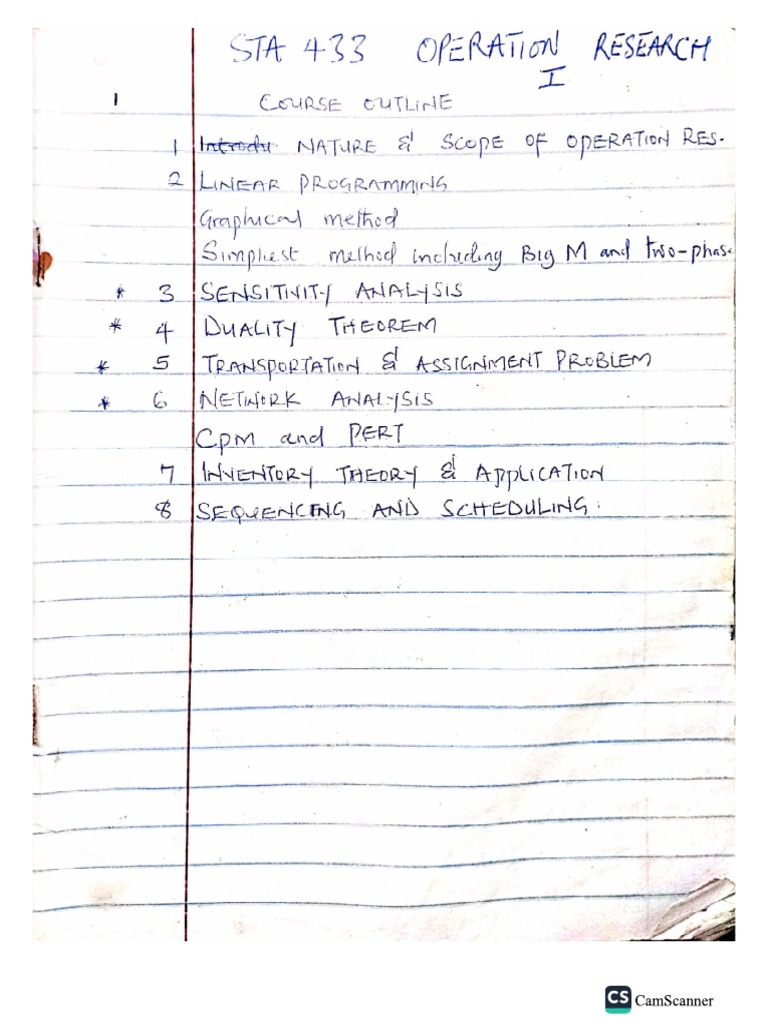 STA 433 OPERATION RESEARCH
I
1 COURSE OUTLINE
1 Introdu NATURE & SCOPE OF OPERATION RES.
2 LINEAR PROGRAMMING
Graphical method
Simpliest method including Big M and two-phase
* 3 SENSITIVITY ANALYSIS
* 4 DUALITY THEOREM
* 5 TRANSPORTATION & ASSIGNMENT PROBLEM
* 6 NETWORK ANALYSIS
CPM and PERT
7 INVENTORY THEORY & APPLICATION
8 SEQUENCING AND SCHEDULING.
CS CamScanner